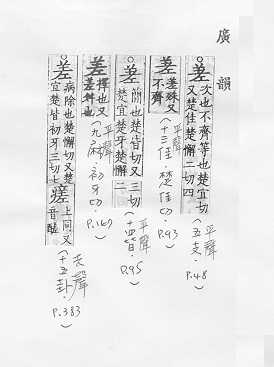 廣韻
差 次也不齊等也楚宜切又楚佳楚懈二切四
平聲（五支．P.48）
差 差殊又不齊
平聲（十三佳．楚佳切．P.93）
差 簡也楚皆切又楚宜楚牙楚懈二三切
平聲（十四皆．P.95）
差 擇也又差舛也
平聲（九麻．初牙切．P.167）
差 病除也楚懈切又楚宜楚皆初牙三切七
瘥 上同又音醝
去聲（十五卦．P.383）